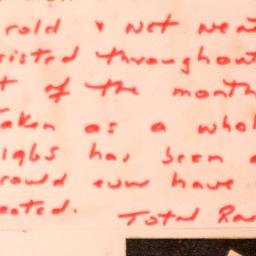 cold & wet wea
sisted throughout
t of the month
Taken as a whol
has been a
could ever have
eated. Total Ra